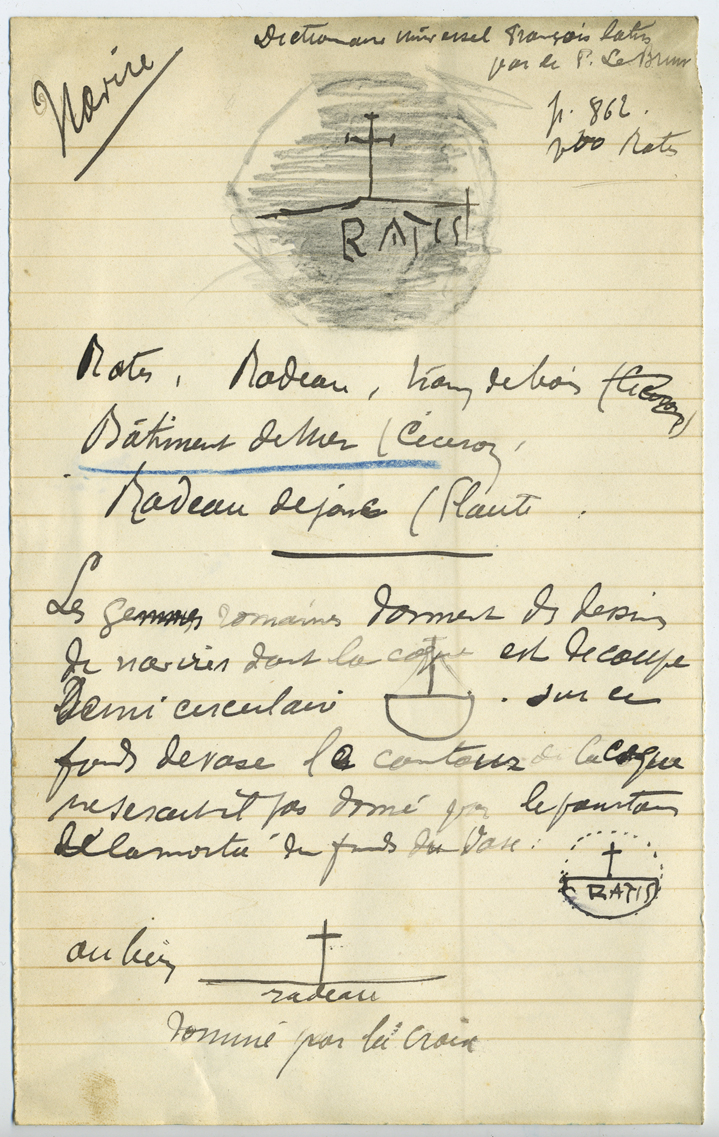 Dictionnaire universel français latin
par le P. Le Brun
Navire
p. 862.
vbo Ratis
RATIS
Ratis, Radeau, train de bois (Ciceron)
Bâtiment de Mer (Ciceron,
Radeau de jonc (Plaute.
Les gemmes romaines donnent des dessins
de navires dont la coque est decoupe
Demi circulair . sur ce
fonds de vase le contour de la coque
ne serait il pas donné par le pourtour
de la moitié du fonds du Vase.
RATIS
ou bien
radeau
Dominé par la Croix